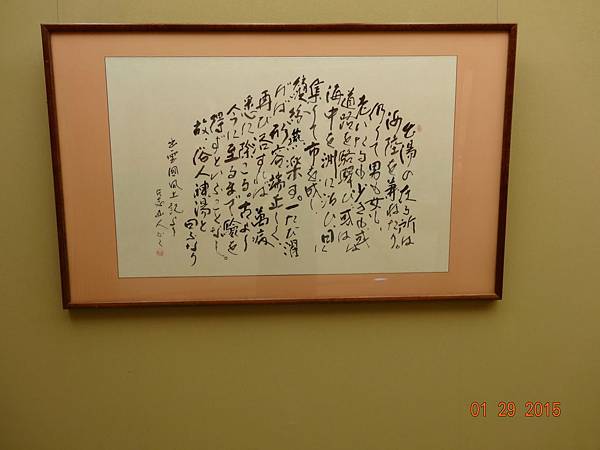 出湯の在る所は
海陸を兼ねたり。
仍りて男も女も
老いたるも少きも或は
道路を駱驛ひ或は
海中を洲に沿ひ日に
集ひて市を成し
繽紛燕楽す。一たび濯
げば形容端正しく、
再び浴すれば萬病
悉に除こる。古より
今に至るまで験を
得ずといふことなし。
故、俗人神湯と
曰ふなり
出雲國風土記より
01 29 2015